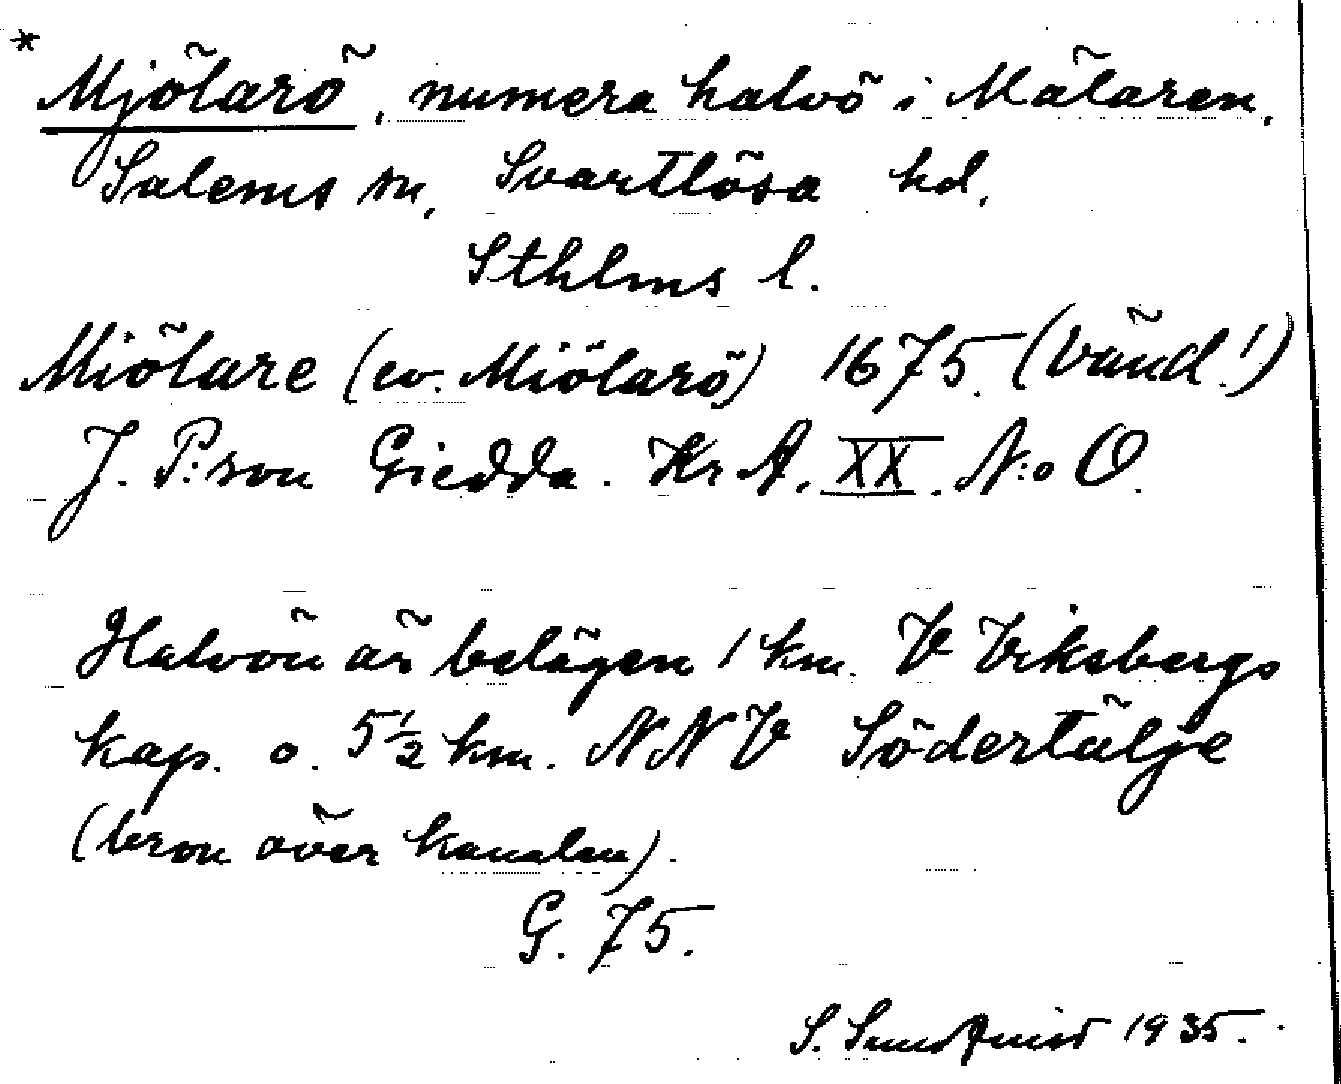 * Mjölarö, numera halvö i Mälaren,
Salems sn, Svartlösa hd,
Sthlms l.
Miölare (ev. Miölarö) 1675. (vänd!)
J. P:son Giedda. Kr A. XX. N:o O.
Halvön är belägen 1 km. V Viksbergs
kap. o. 5 1/2 km. NNV Södertälje
(bron över kanalen).
G. 75.
S. Sundquist 1935.